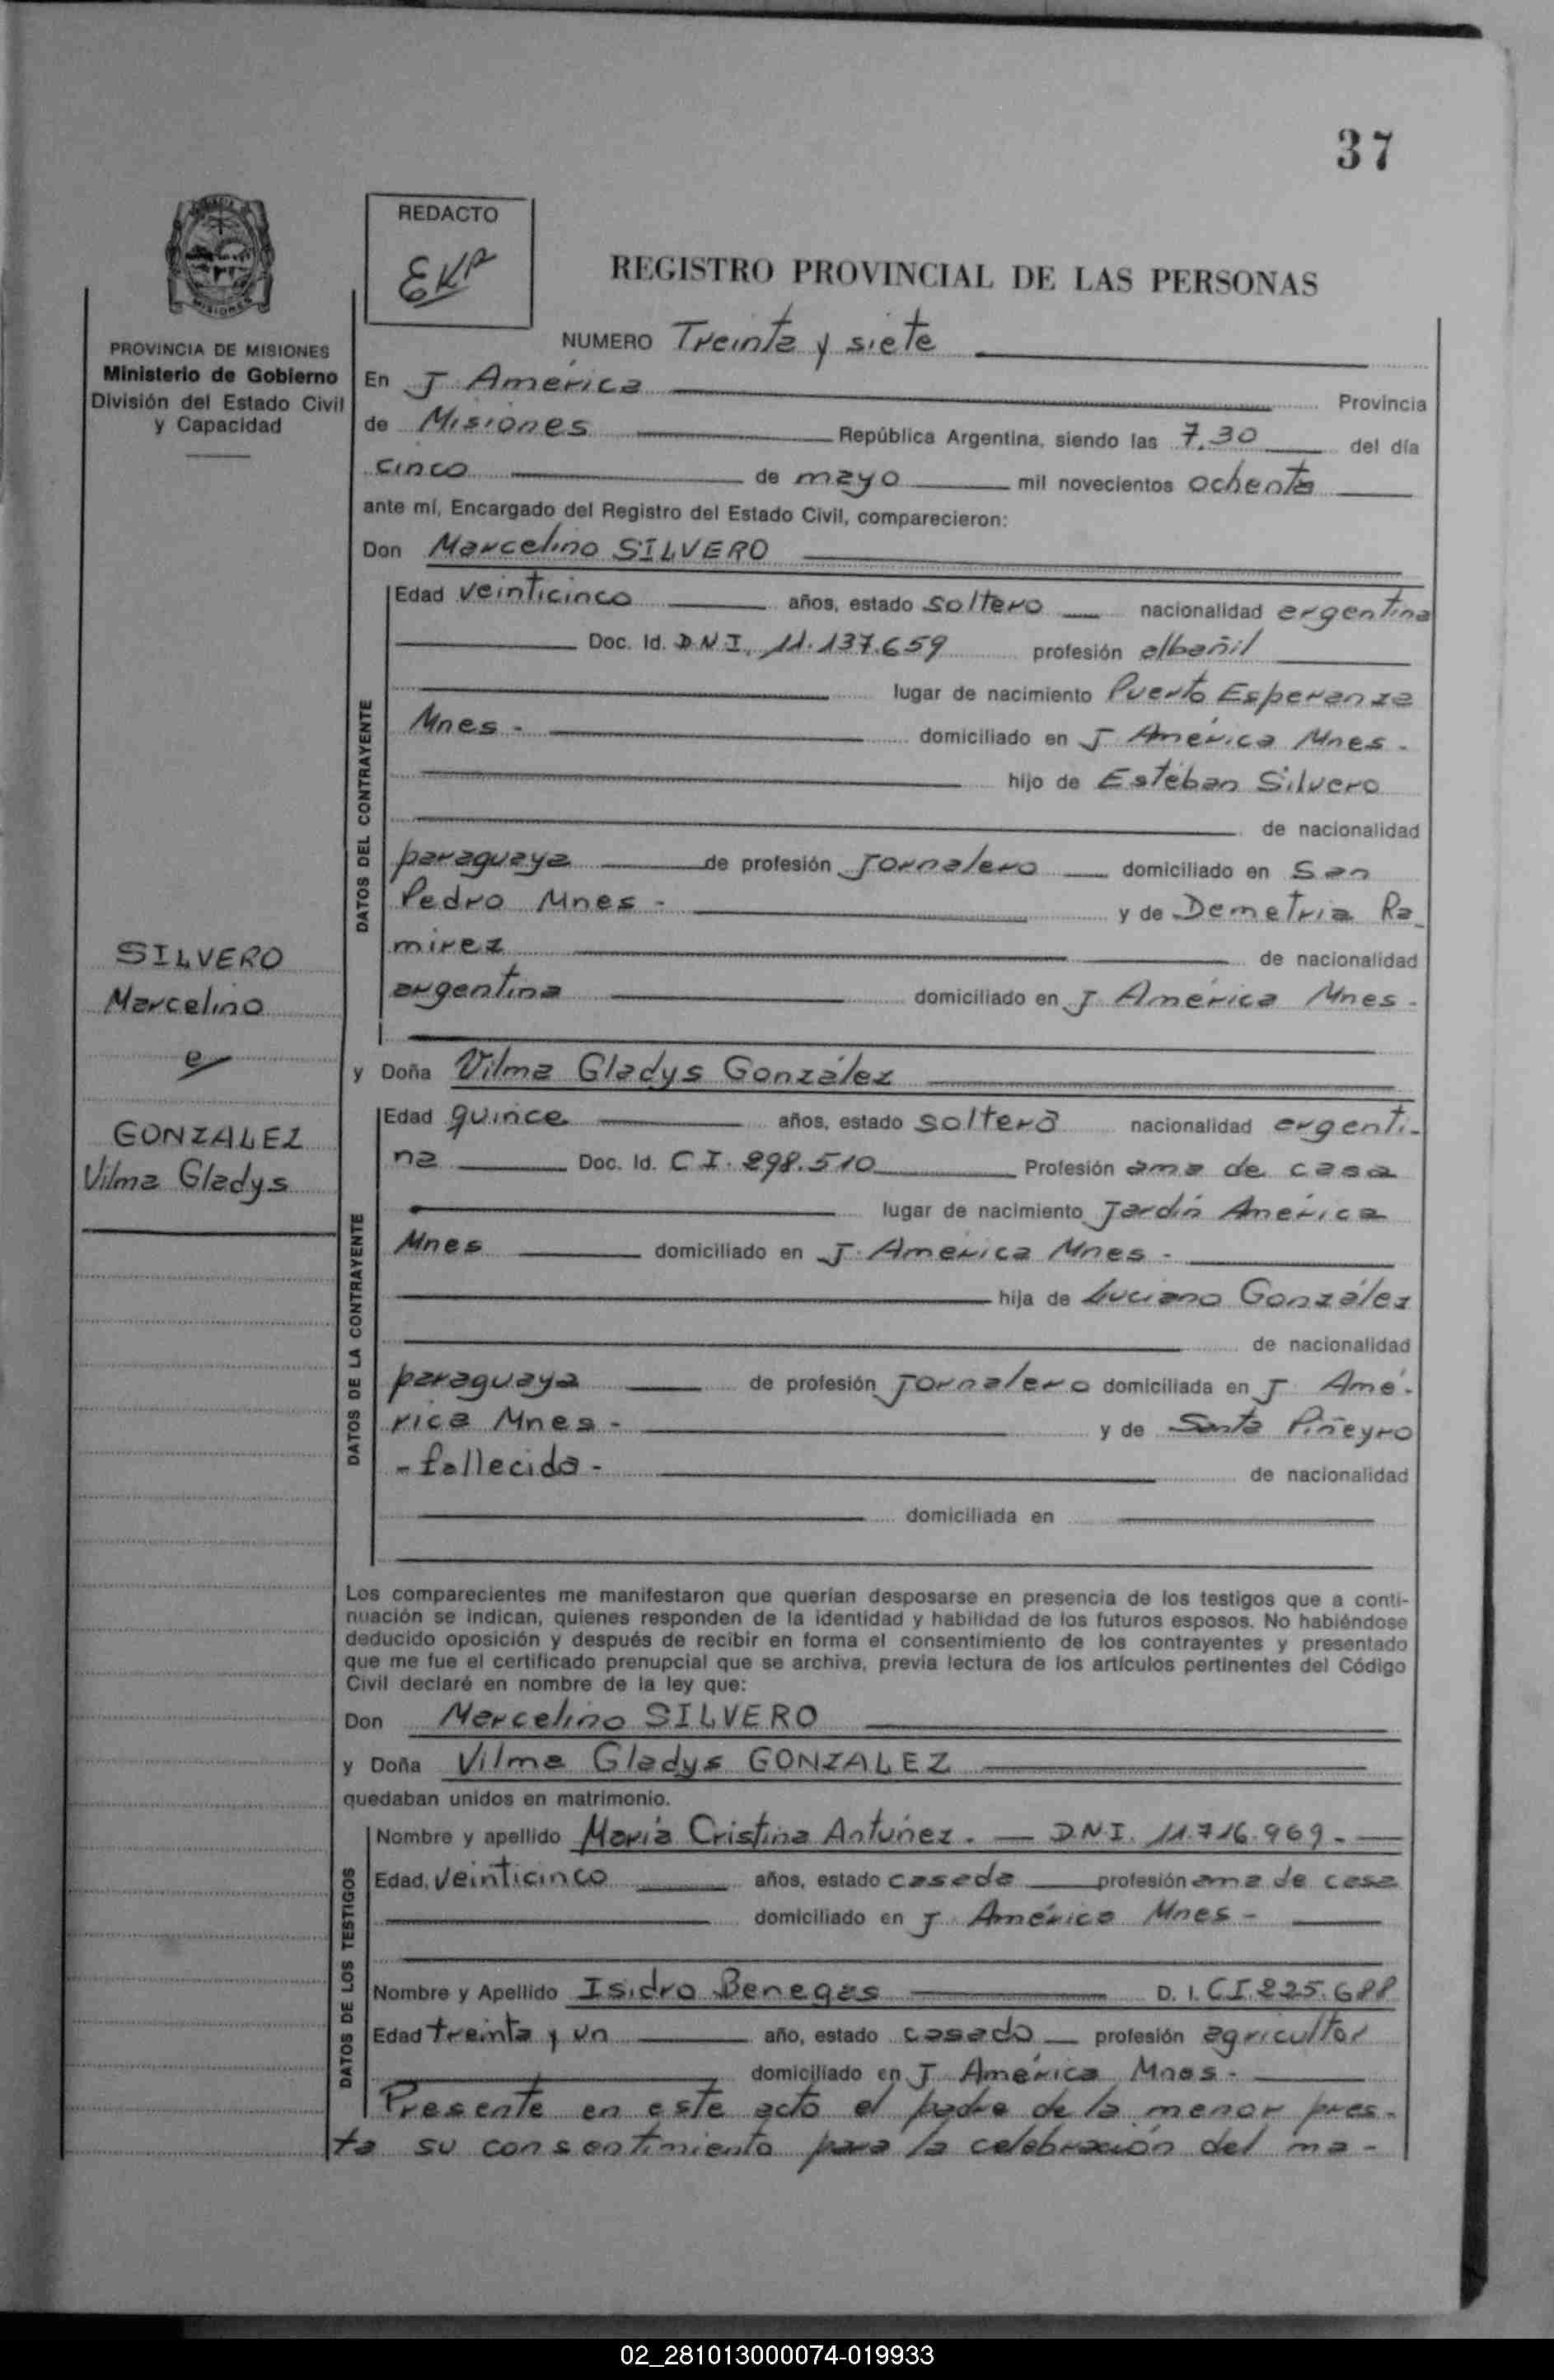 37
REDACTO
EKR
REGISTRO PROVINCIAL DE LAS PERSONAS
MISIONES
PROVINCIA DE MISIONES
Ministerio de Gobierno
División del Estado Civil
y Capacidad
NUMERO Treinta y siete
En J América Provincia
de Misiones República Argentina, siendo las 7,30 del día
cinco de mayo mil novecientos ochenta
ante mí, Encargado del Registro del Estado Civil, comparecieron:
Don Marcelino SILVERO
DATOS DEL CONTRAYENTE
Edad veinticinco años, estado soltero nacionalidad argentina
Doc. Id. D.N.I. 11.137.659 profesión albañil
lugar de nacimiento Puerto Esperanza
Mnes - domiciliado en J América Mnes -
hijo de Estéban Silvero
de nacionalidad
paraguaya de profesión Jornalero domiciliado en San
Pedro Mnes - y de Demetria Ra
mirez de nacionalidad
argentina domiciliado en J América Mnes -
SILVERO
Marcelino
e
GONZALEZ
Vilma Gladys
y Doña Vilma Gladys González
DATOS DE LA CONTRAYENTE
Edad quince años, estado soltera nacionalidad argenti-
na Doc. Id. C I. 298.510 Profesión ama de casa
lugar de nacimiento Jardín América
Mnes domiciliado en J. América Mnes -
hija de Luciano González
de nacionalidad
paraguaya de profesión Jornalero domiciliada en J Amé-
rica Mnes - y de Santa Piñeyro
- fallecida - de nacionalidad
domiciliada en
Los comparecientes me manifestaron que querían desposarse en presencia de los testigos que a conti-
nuación se indican, quienes responden de la identidad y habilidad de los futuros esposos. No habiéndose
deducido oposición y después de recibir en forma el consentimiento de los contrayentes y presentado
que me fue el certificado prenupcial que se archiva, previa lectura de los artículos pertinentes del Código
Civil declaré en nombre de la ley que:
Don Marcelino SILVERO
y Doña Vilma Gladys GONZALEZ
quedaban unidos en matrimonio.
DATOS DE LOS TESTIGOS
Nombre y apellido María Cristina Antúnez. — D.N.I. 11.716.969. —
Edad veinticinco años, estado casada profesión ama de casa
domiciliado en J América Mnes -
Nombre y Apellido Isidro Benegas D. I. C.I. 225.688
Edad treinta y un año, estado casado profesión agricultor
domiciliado en J América Mnes -
Presente en este acto el padre de la menor pres-
ta su consentimiento para la celebración del ma-
02_281013000074-019933